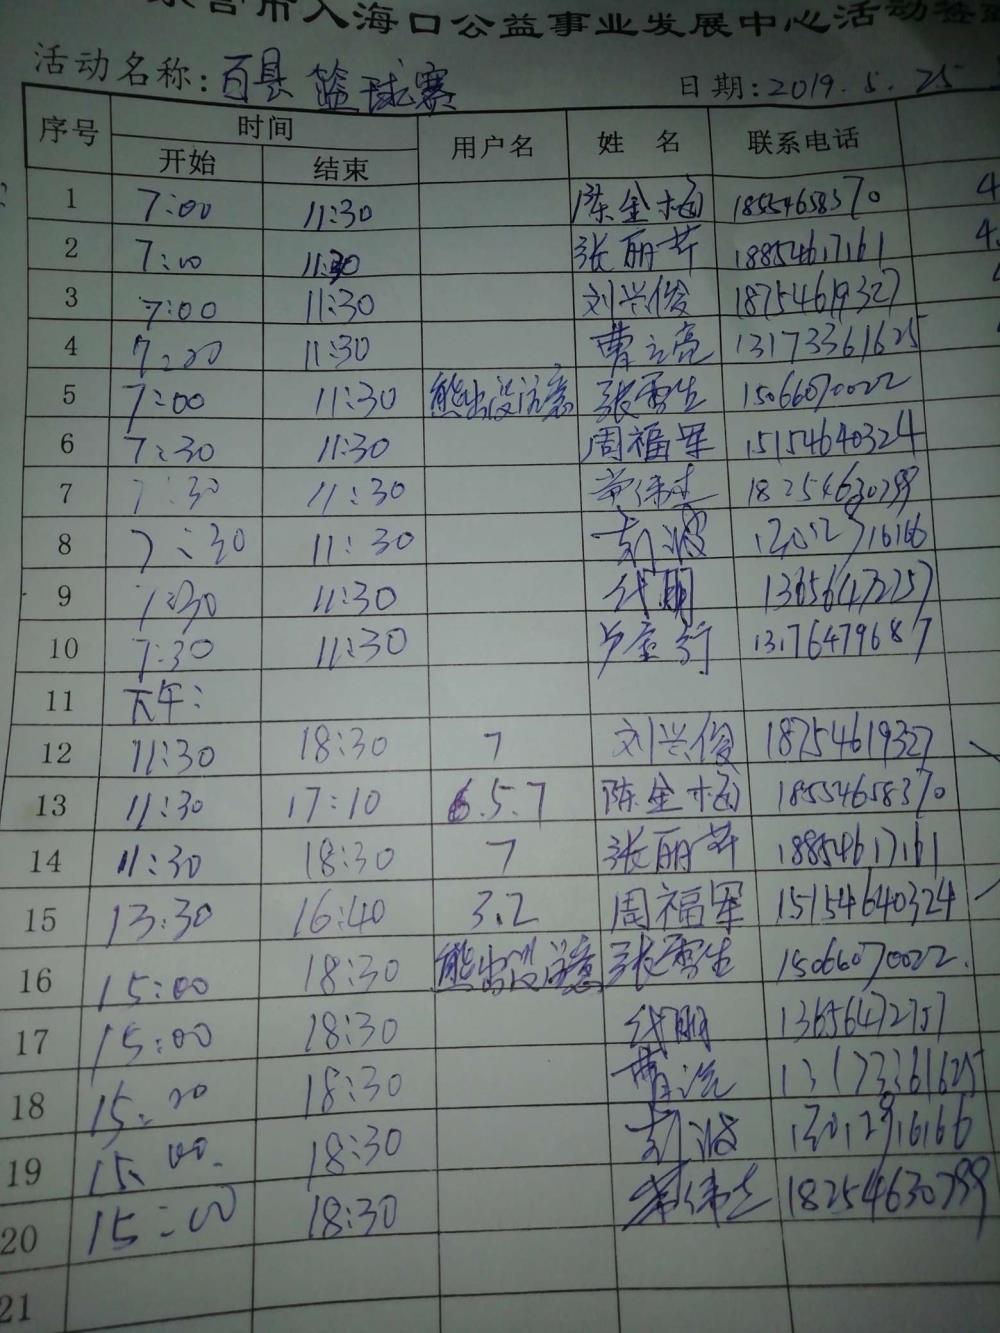 东营市入海口公益事业发展中心活动签
活动名称：百县篮球赛 日期：2019.5.25
序号 时间 用户名 姓名 联系电话
开始 结束
1 7:00 11:30 陈金梅 18554658370 4
2 7:00 11:30 张丽芹 18854617161 4.
3 7:00 11:30 刘兴俊 18754619327
4 7:00 11:30 曹立亮 13173361625
5 7:00 11:30 熊出没注意 张雪生 15066070022
6 7:30 11:30 周福军 15154640324
7 7:30 11:30 18254630799
8 7:30 11:30 彭波
9 7:30 11:30 代朋 13656472757
10 7:30 11:30 13176479687
11 下午：
12 11:30 18:30 7 刘兴俊 18754619327
13 11:30 17:10 6.5.7 陈金梅 18554658370
14 11:30 18:30 7 张丽芹 18854617161
15 13:30 16:40 3.2 周福军 15154640324
16 15:00 18:30 熊出没注意 张雪生 15066070022.
17 15:00 18:30 代朋 13656472757
18 15:00 18:30 13173361625
19 15:00 18:30 彭波
20 15:00 18:30 18254630799
21